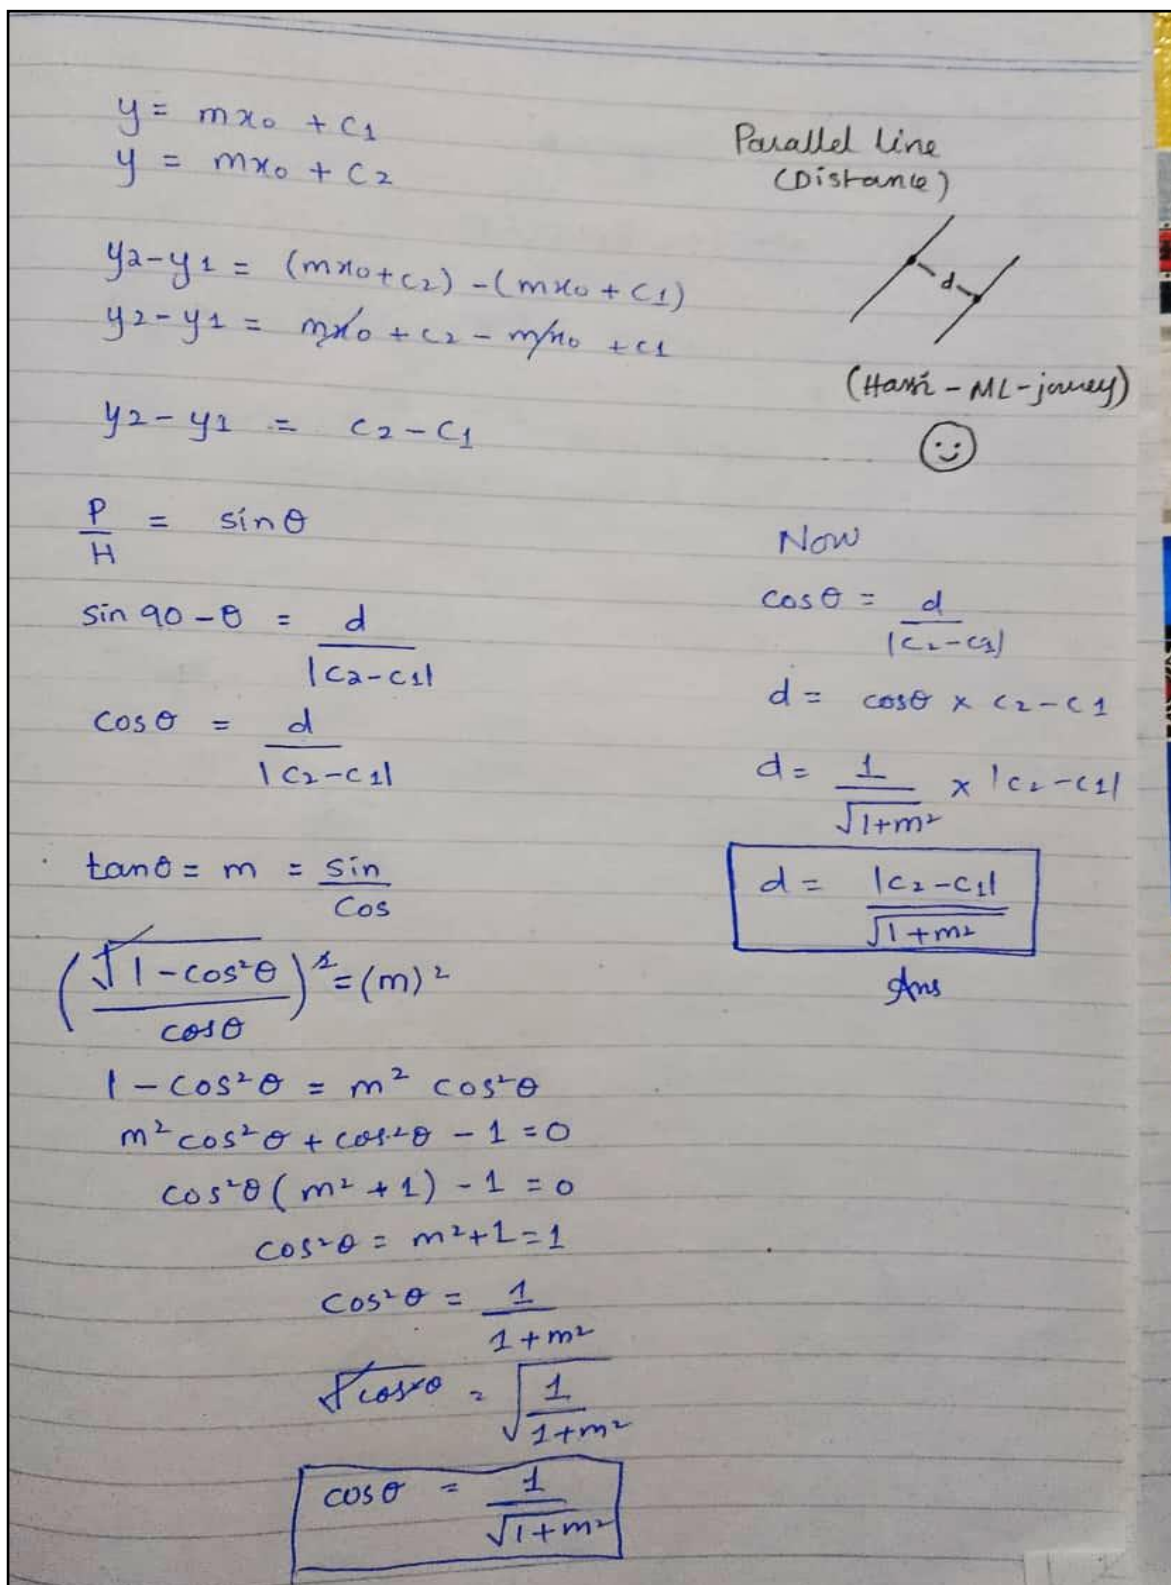 y = mx₀ + c1
y = mx₀ + c2
y2-y1 = (mx₀+c2) -(mx₀ + c1)
y2-y1 = mx₀ + c2 - mx₀ + c1
y2-y1 = c2-c1
P/H = sinθ
sin 90-θ = d/|c2-c1|
cosθ = d/|c2-c1|
tanθ = m = sin/cos
(√1-cos²θ/cosθ)² = (m)²
1-cos²θ = m² cos²θ
m² cos²θ + cos²θ - 1 = 0
cos²θ(m² + 1) - 1 = 0
cos²θ = m²+1 = 1
cos²θ = 1/1+m²
√cos²θ = √1/1+m²
cosθ = 1/√1+m²
Parallel line
(Distance)
d
Now
cosθ = d/|c2-c1|
d = cosθ × c2-c1
d = 1/√1+m² × |c2-c1|
d = |c2-c1|/√1+m²
Ans